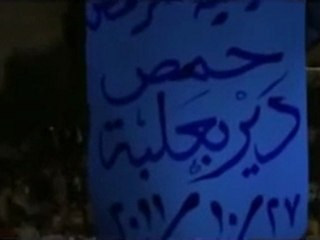 حمص
دير بعلبة
٢٧/١٠/٢٠١١